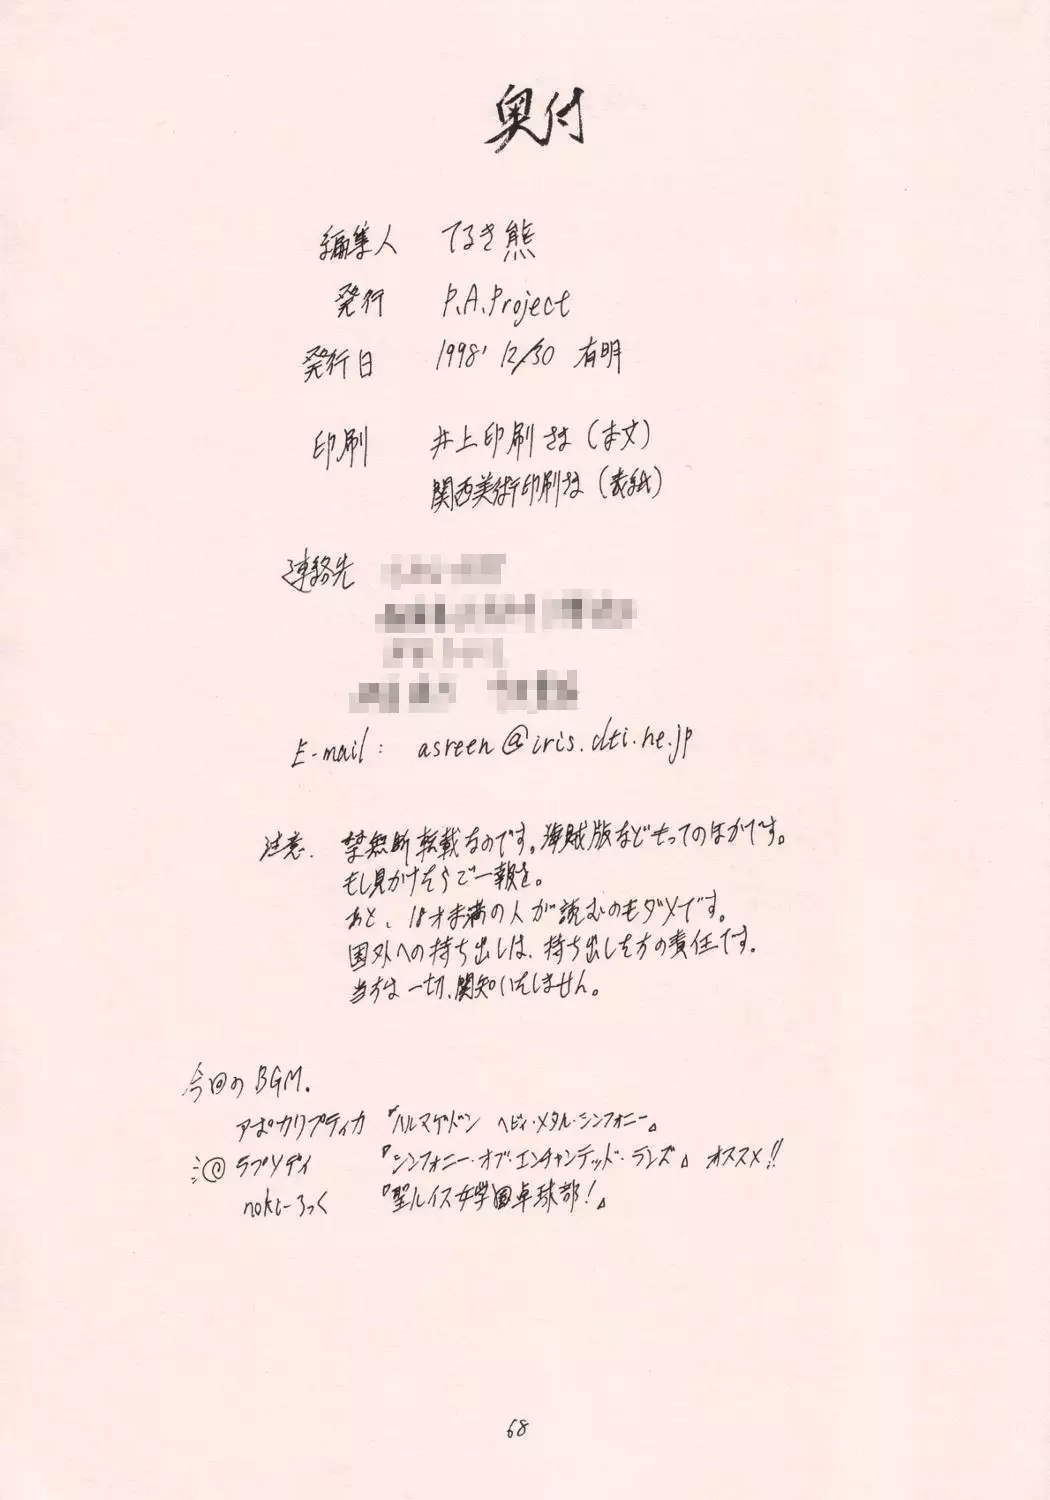 奥付
編集人 てるき熊
発行 P.A.Project
発行日 1998' 12/30 有明
印刷 井上印刷さま（本文）
関西美術印刷さま（表紙）
連絡先
E-mail : asreen@iris.dti.ne.jp
注意. 禁無断転載なのです。海賊版などもってのほかです。
もし見かけたらご一報を。
あと、18才未満の人が読むのもダメです。
国外への持ち出しは、持ち出した方の責任です.
当方は一切、関知いたしません。
今回のBGM.
アポカリプティカ 『ハルマゲドン ヘビィ・メタル・シンフォニー』
ラプソディ 『シンフォニー・オブ・エンチャンテッド・ランズ』 オススメ!!
『聖ルイス女学園卓球部!』
68